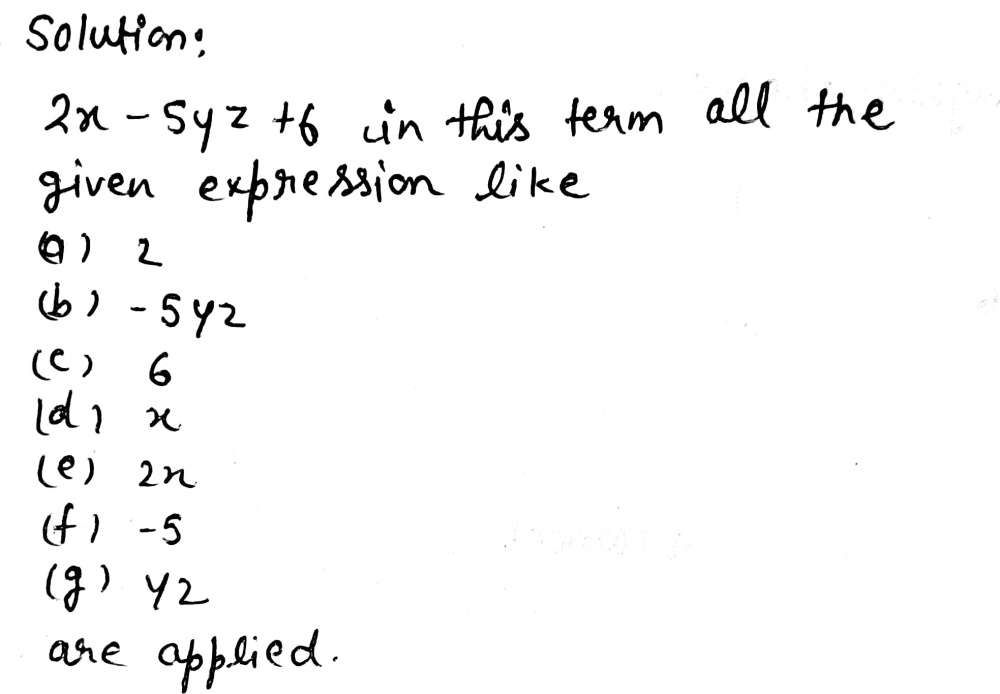 Solution:
2x - 5yz + 6 in this term all the
given expression like
(a) 2
(b) - 5yz
(c) 6
(d) x
(e) 2x
(f) -5
(g) yz
are applied.